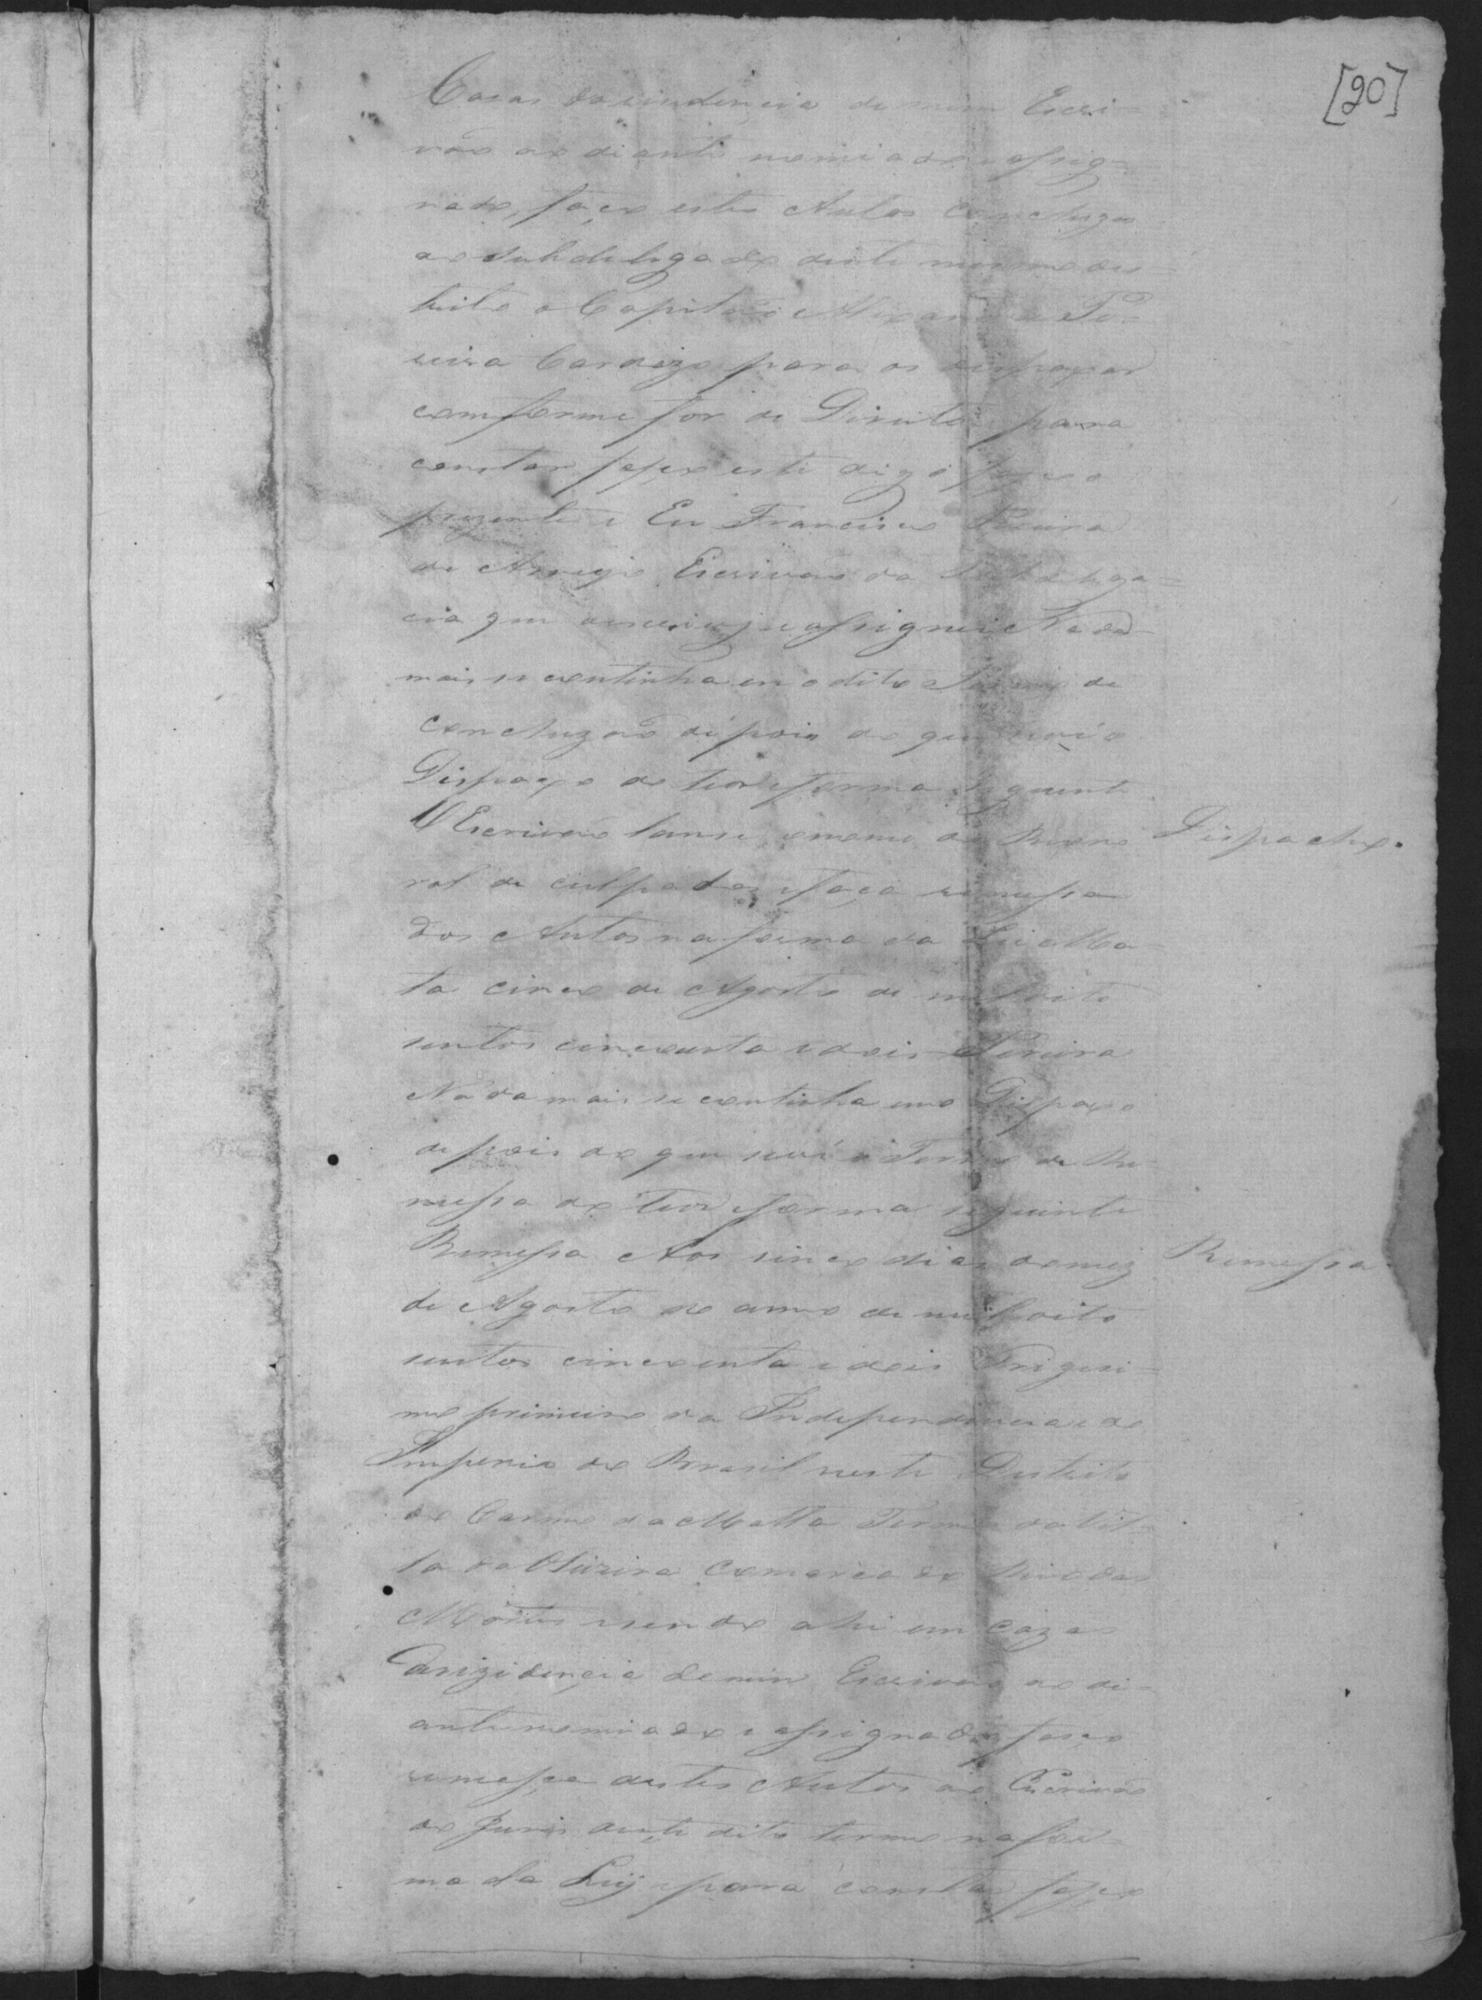 [20]
Cazas da rizidencia de mim Escri-
vão ao diante nomiado e assig-
nado, faço estes Autos Concluzos
ao Subdelegado deste mesmo des-
trito o Capitão Alexandre Pe-
reira Cardozo para os despaxar
comforme for de Direito e para
constar fasço este digo fasço o
prezente e Eu Francisco Pereira
de Araujo Escrivão da Subdeliga-
cia que oescrevy e assignei Nada
mais se continha em o dito Termo de
Concluzaõ dipois do que se via o
Dispaxo do teor e forma siguinte
O Escrivão lanse o nome do Reo no Dispacho.
rol de culpados e faça remessa
dos Autos na forma da Lei Ma-
ta cinco de Agosto de mil oito
sentos cincoenta e dois Pereira
Nada mais se continha em o Dispaxo
depois do que se via o Termo de Re-
messa do Teor e forma siguinte
Remessa Aos sinco dias do mez Remessa
de Agosto do anno de mil oito
sentos cincoenta e dois Trigesi-
mo primeiro da Independencia e do
Imperio do Brasil neste Destrito
do Carmo da Matta Termo da Vil-
la da Oliveira Comarca do Rio das
Mortes e sendo ahi em cazas
da rizidencia de mim Escrivão ao di-
ante nomiado e assignado faço
remessa destes Autos ao Escrivão
do Juri deste dito termo na for-
ma da Ley e para constar fasço